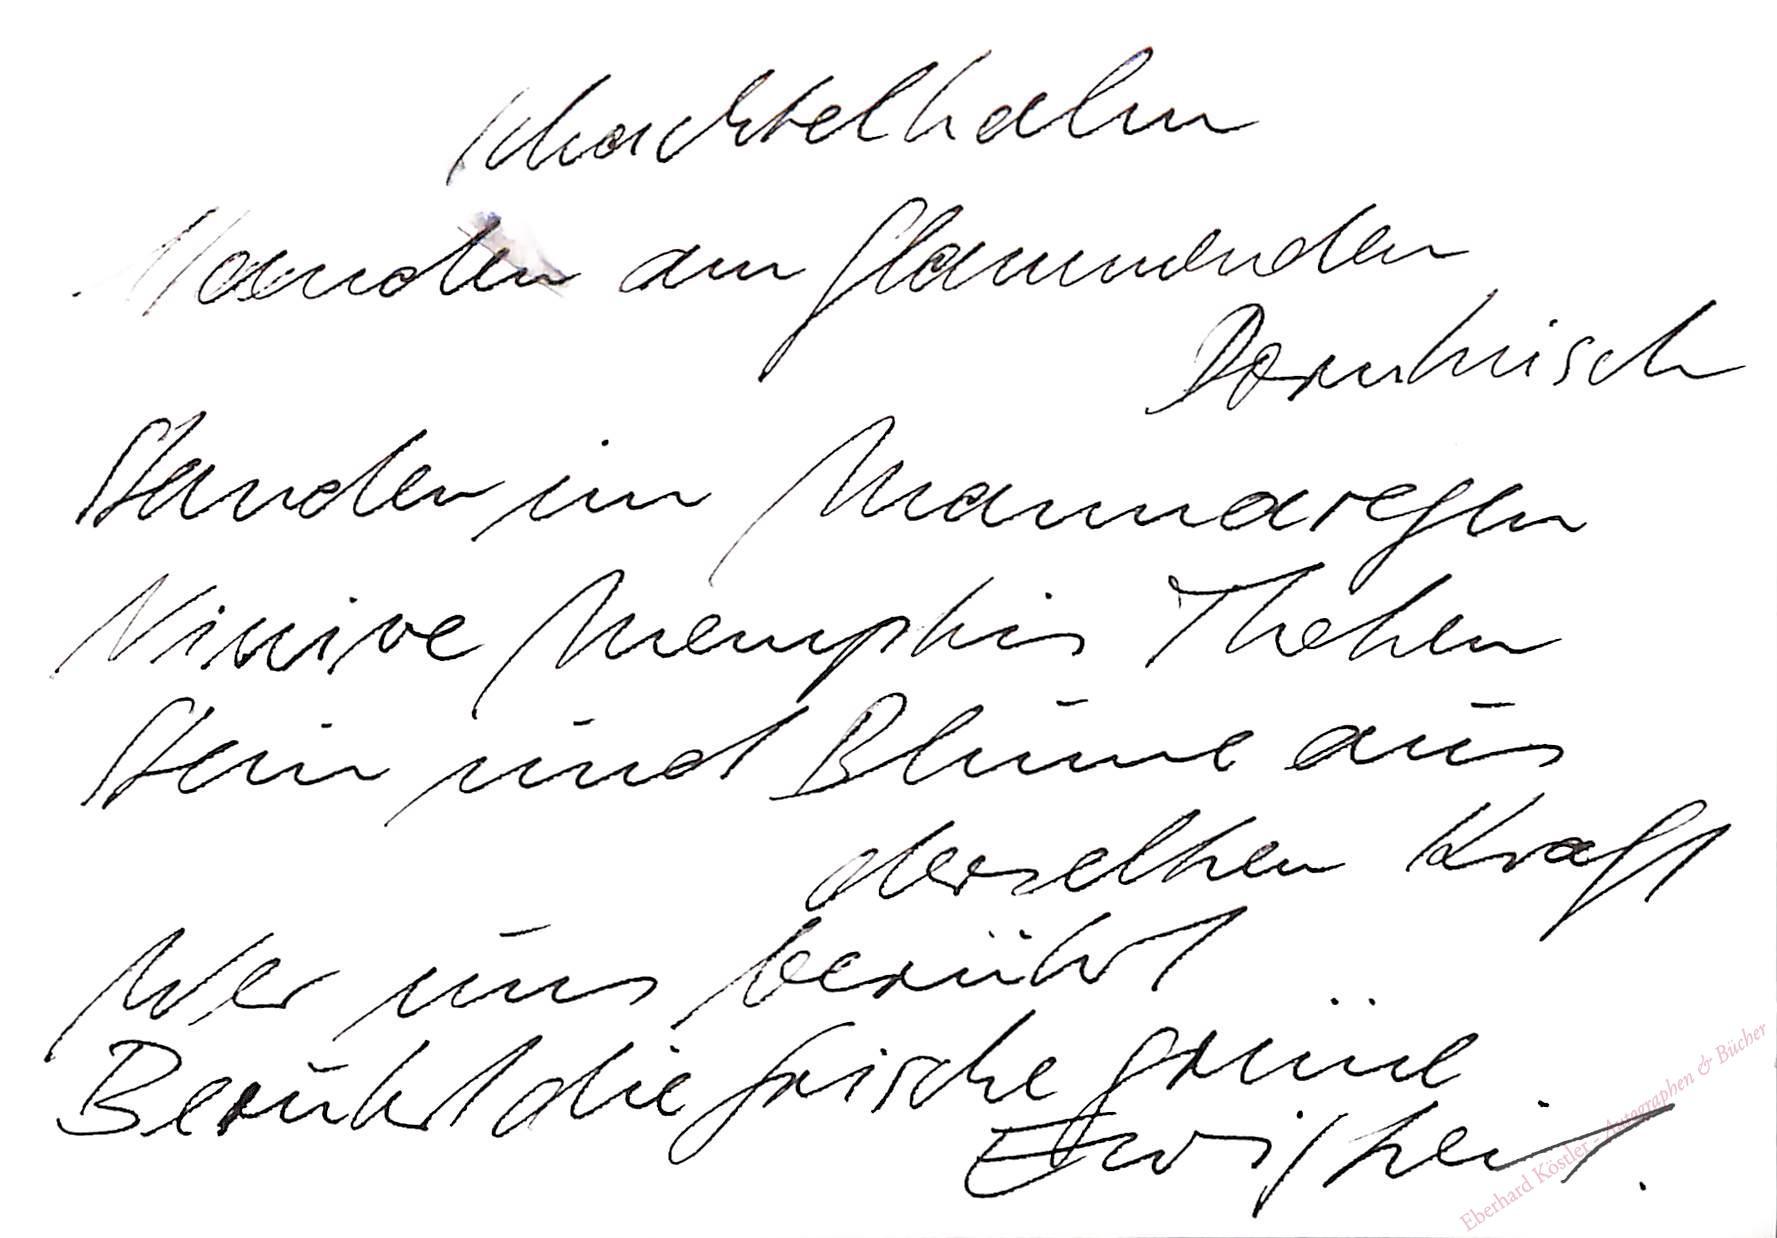 Schachtelhalm
Standen am flammenden
Dornbusch
Standen im Mannaregen
Ninive Memphis Theben
Stein und Blume aus
derselben Kraft
Wer uns berührt
Berührt die frische grüne
Ewigkeit.
Eberhard Köstler - Autographen & Bücher